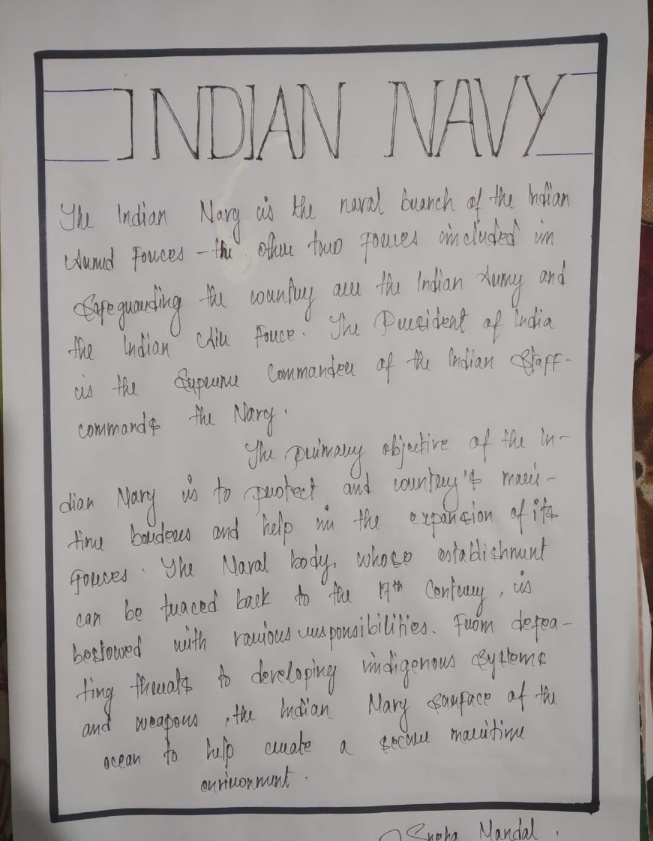 INDIAN NAVY
The Indian Navy is the naval branch of the Indian
Armed Forces - the other two forces included in
Safeguarding the country are the Indian Army and
the Indian Air Force. The President of India
is the Supreme Commander of the Indian Staff-
commands the Navy.
The primary objective of the In-
dian Navy is to protect and country's mari-
time borders and help in the expansion of its
forces. The Naval body, whose establishment
can be traced back to the 17th Century, is
bestowed with various responsibilities. From defea-
ting threats to developing indigenous Systems
and weapons, the Indian Navy surface of the
ocean to help create a secure maritime
environment.
Mandal.